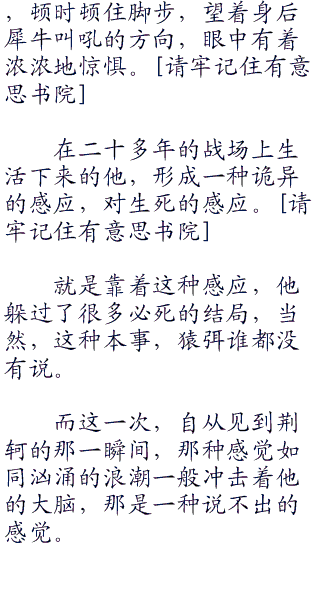 ，顿时顿住脚步，望着身后
犀牛叫吼的方向，眼中有着
浓浓地惊惧。[请牢记住有意
思书院]
在二十多年的战场上生
活下来的他，形成一种诡异
的感应，对生死的感应。[请
牢记住有意思书院]
就是靠着这种感应，他
躲过了很多必死的结局，当
然，这种本事，猿弭谁都没
有说。
而这一次，自从见到荆
轲的那一瞬间，那种感觉如
同汹涌的浪潮一般冲击着他
的大脑，那是一种说不出的
感觉。